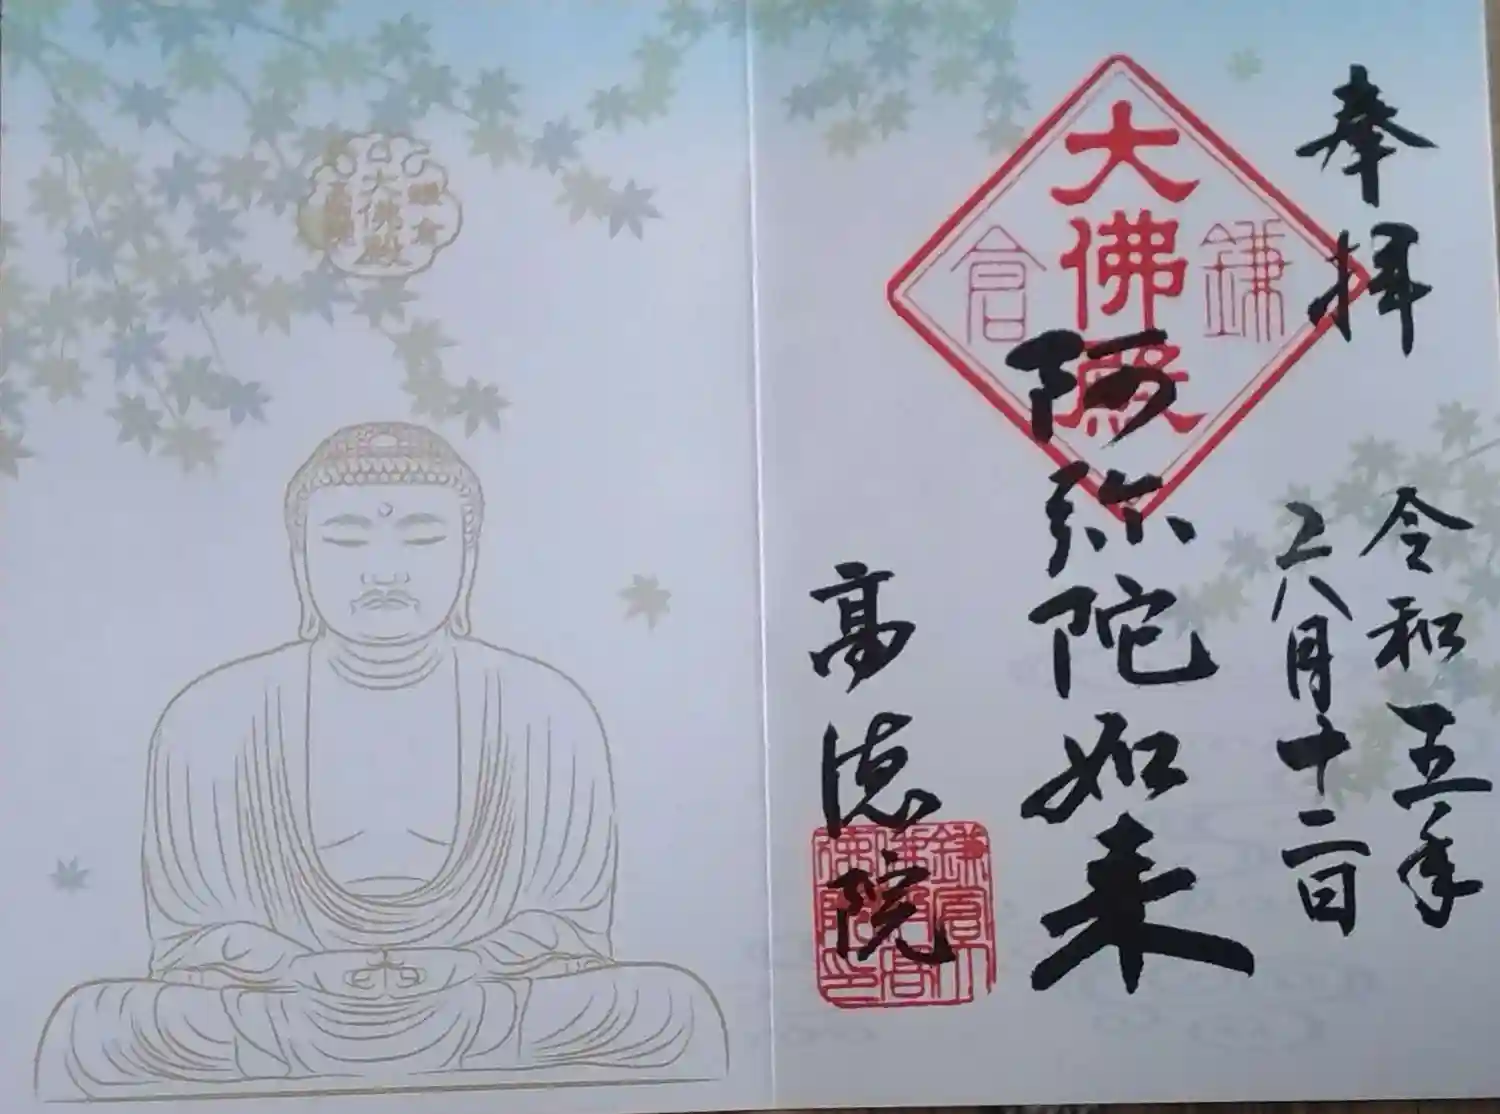 奉拝
令和五年
六月十二日
大佛殿
鎌倉
阿弥陀如来
高徳院
大佛殿
鎌倉